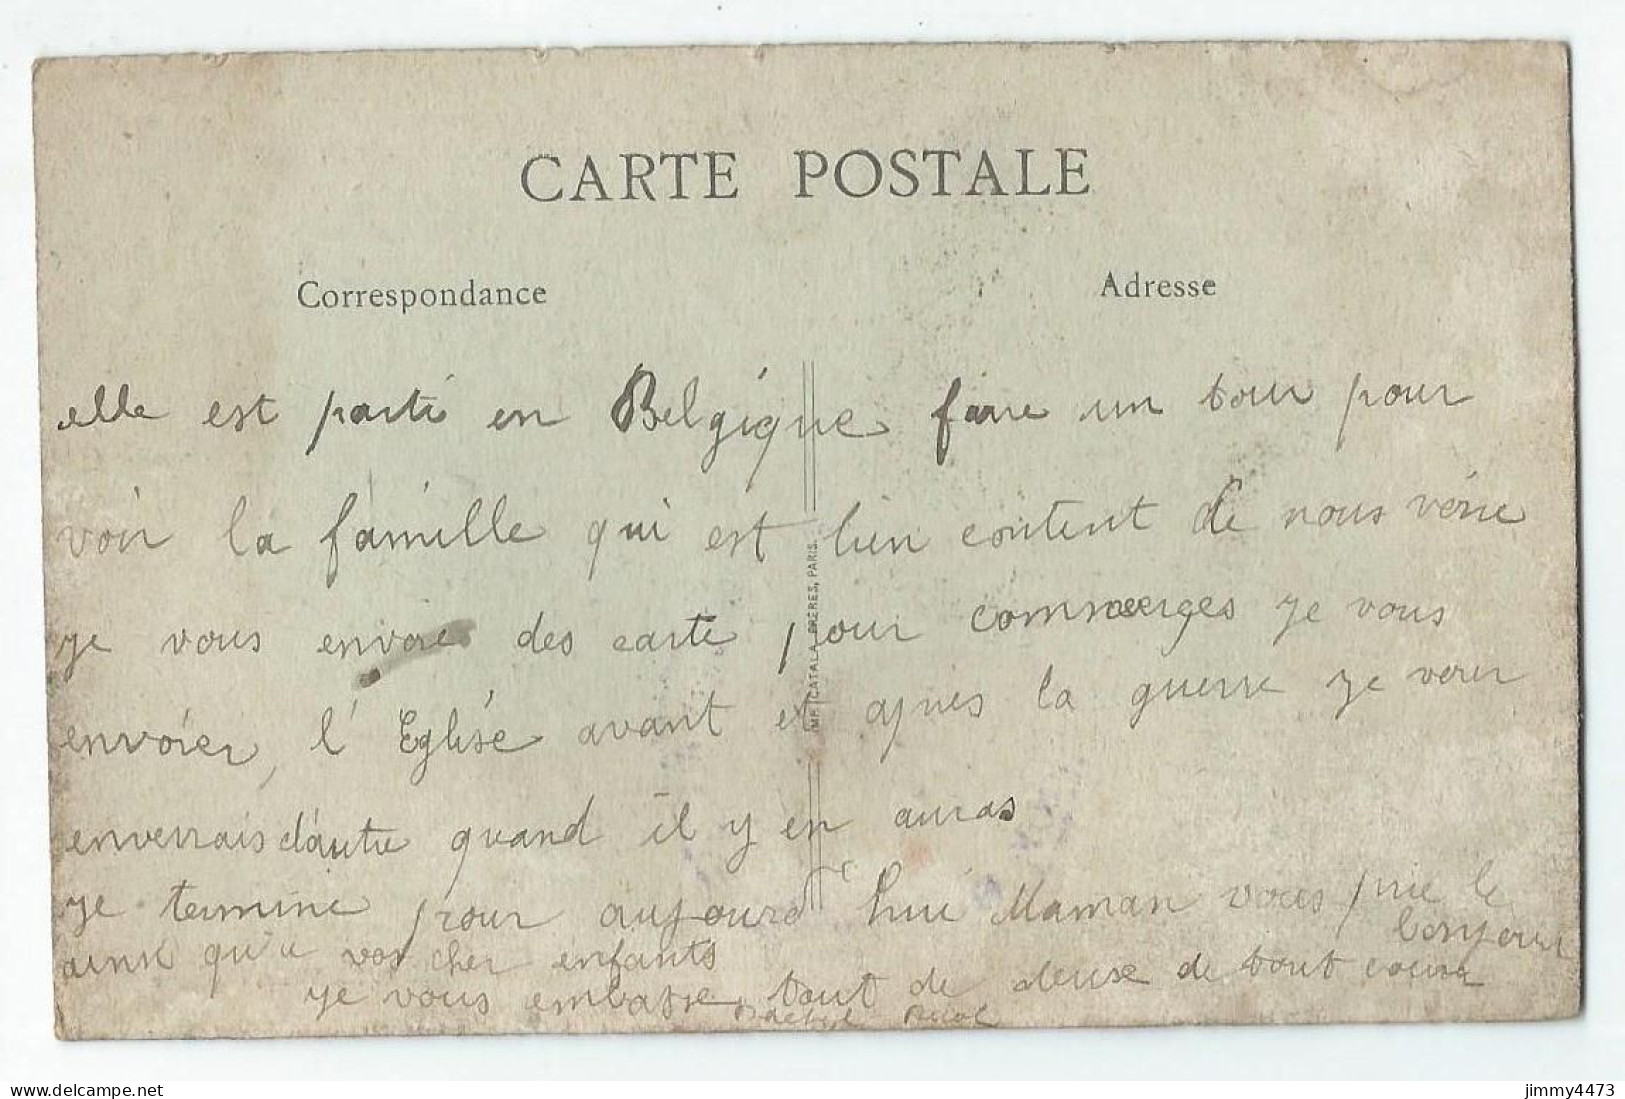 CARTE POSTALE
Correspondance
Adresse
elle est parti en Belgique faire un tour pour
voir la famille qui est bien content de nous voire
je vous envoie des carte pour commerges je vous
envoier, l'Eglise avant et apres la guerre je vous
enverrais d'autre quand il y en auras
je termine pour aujourd'hui Maman vous prie le bonjour
ainsi qu'a vos cher enfants
je vous embasse tout de deuxe de tout coeur
Rachel
IMP. CATALA FRERES, PARIS.
jimmy4473
https://www.delcampe.net